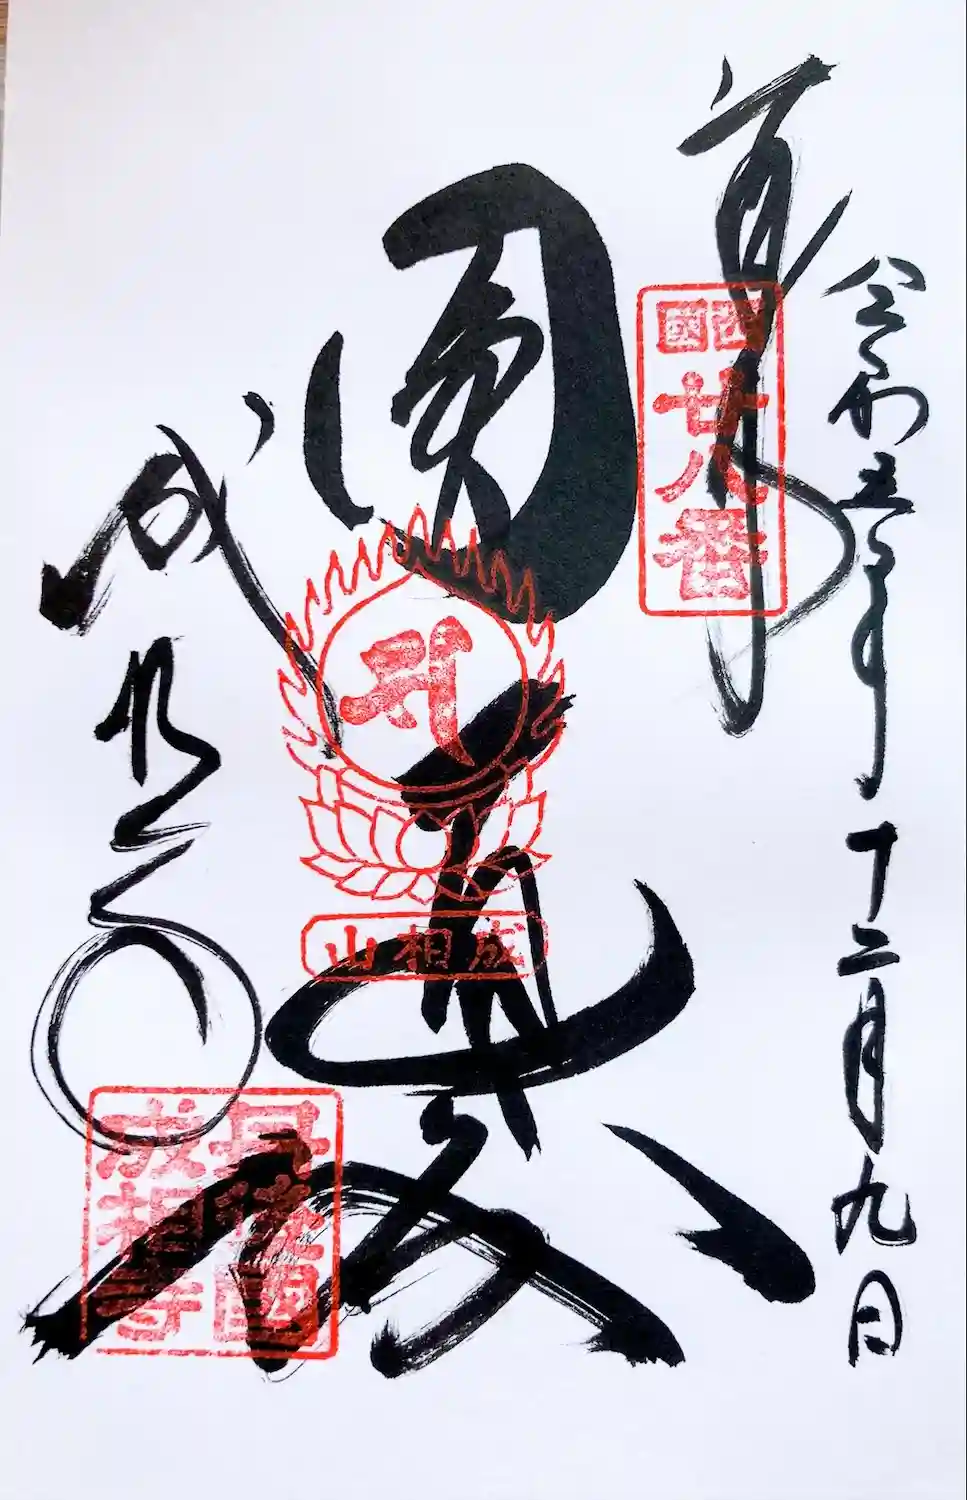 奉拝
令和五年十二月九日
西國
廿八番
圓通殿
成相山
成相寺
丹後國
成相寺